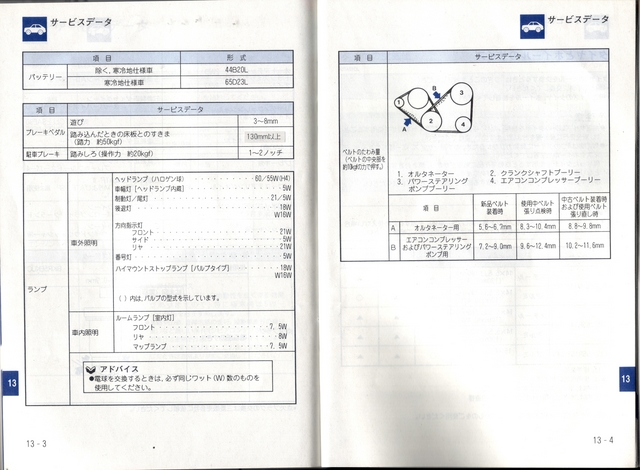 サービスデータ
項 目 形 式
バッテリー 除く、寒冷地仕様車 44B20L
寒冷地仕様車 65D23L
項 目 サービスデータ
ブレーキペダル 遊び 3～8mm
踏み込んだときの床板とのすきま
(踏力 約50kgf) 130mm以上
駐車ブレーキ 踏みしろ(操作力 約20kgf) 1～2ノッチ
ランプ
車外照明
ヘッドランプ(ハロゲン球) 60/55W(H4)
車幅灯[ヘッドランプ内蔵] 5W
制動灯/尾灯 21/5W
後退灯 18W
W16W
方向指示灯
フロント 21W
サイド 5W
リヤ 21W
番号灯 5W
ハイマウントストップランプ[バルブタイプ] 18W
W16W
( )内は、バルブの型式を示しています。
車内照明
ルームランプ[室内灯]
フロント 7.5W
リヤ 8W
マップランプ 7.5W
アドバイス
●電球を交換するときは、必ず同じワット(W)数のものを
使用してください。
13
13-3
サービスデータ
項 目 サービスデータ
ベルトのたわみ量
(ベルトの中央部を
約10kgfの力で押す。)
1
2
3
4
A
B
1. オルタネーター 2. クランクシャフトプーリー
3. パワーステアリング 4. エアコンコンプレッサープーリー
ポンププーリー
項 目 新品ベルト
装着時 使用中ベルト
張り点検時 中古ベルト装着時
および使用ベルト
張り直し時
A オルタネーター用 5.6～6.7mm 8.3～10.4mm 8.8～9.8mm
B エアコンコンプレッサー
およびパワーステアリング
ポンプ用 7.2～9.0mm 9.6～12.4mm 10.2～11.6mm
13
13-4